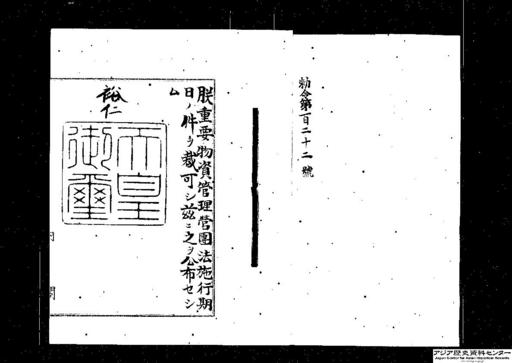 勅令第百二十二號
朕重要物資管理營團法施行期
日ノ件ヲ裁可シ茲ニ之ヲ公布セシ
ム
裕仁
天皇
御璽
内閣
アジア歴史資料センター
Japan Center for Asian Historical Records